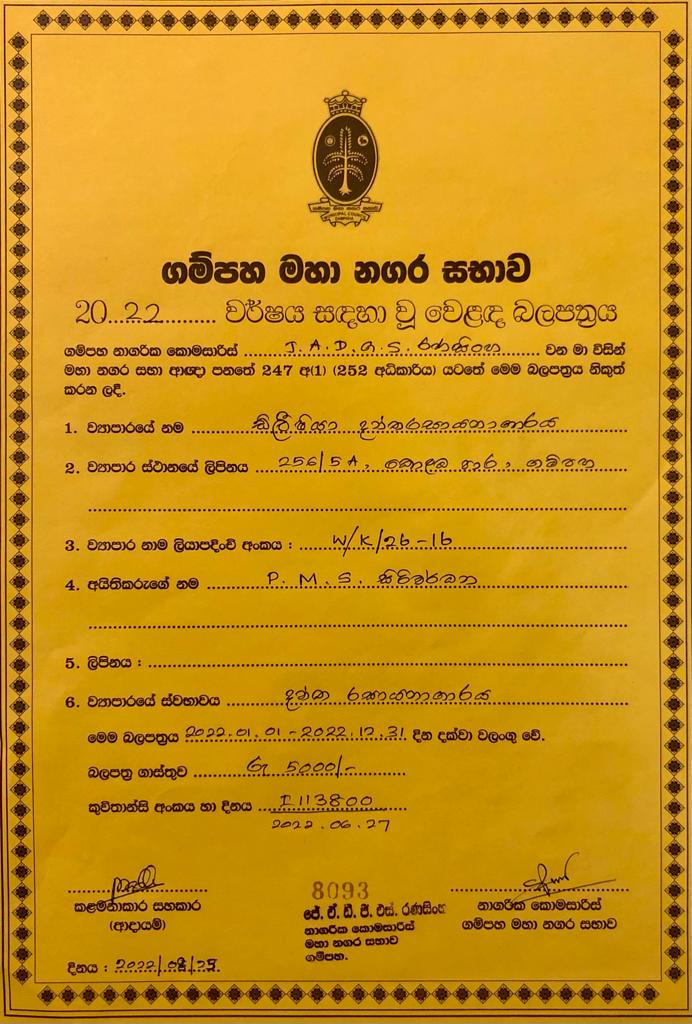 ගම්පහ මහා නගර සභාව
MUNICIPAL COUNCIL
GAMPAHA
ගම්පහ මහා නගර සභාව
2022 වර්ෂය සඳහා වූ වෙළඳ බලපත්‍රය
ගම්පහ නාගරික කොමසාරිස් J.A.D.G.S. රණසිංහ වන මා විසින්
මහා නගර සභා ආඥා පනතේ 247 අ(1) (252 අධිකාරිය) යටතේ මෙම බලපත්‍රය නිකුත්
කරන ලදී.
1. ව්‍යාපාරයේ නම
2. ව්‍යාපාර ස්ථානයේ ලිපිනය 256/5A, කොළඹ පාර, ගම්පහ
3. ව්‍යාපාර නාම ලියාපදිංචි අංකය : W/K/26-16
4. අයිතිකරුගේ නම P. M. S. සිරිවර්ධන
5. ලිපිනය :
6. ව්‍යාපාරයේ ස්වභාවය දන්ත රසායනාගාරය
මෙම බලපත්‍රය 2022.01.01-2022.12.31 දින දක්වා වලංගු වේ.
බලපත්‍ර ගාස්තුව රු 5000/-
කුවිතාන්සි අංකය හා දිනය I113800
2022.06.27
කළමනාකාර සහකාර
(ආදායම්)
8093
ජේ. ඒ. ඩී. ජී. එස්. රණසිංහ
නාගරික කොමසාරිස්
මහා නගර සභාව
ගම්පහ.
නාගරික කොමසාරිස්
ගම්පහ මහා නගර සභාව
දිනය :